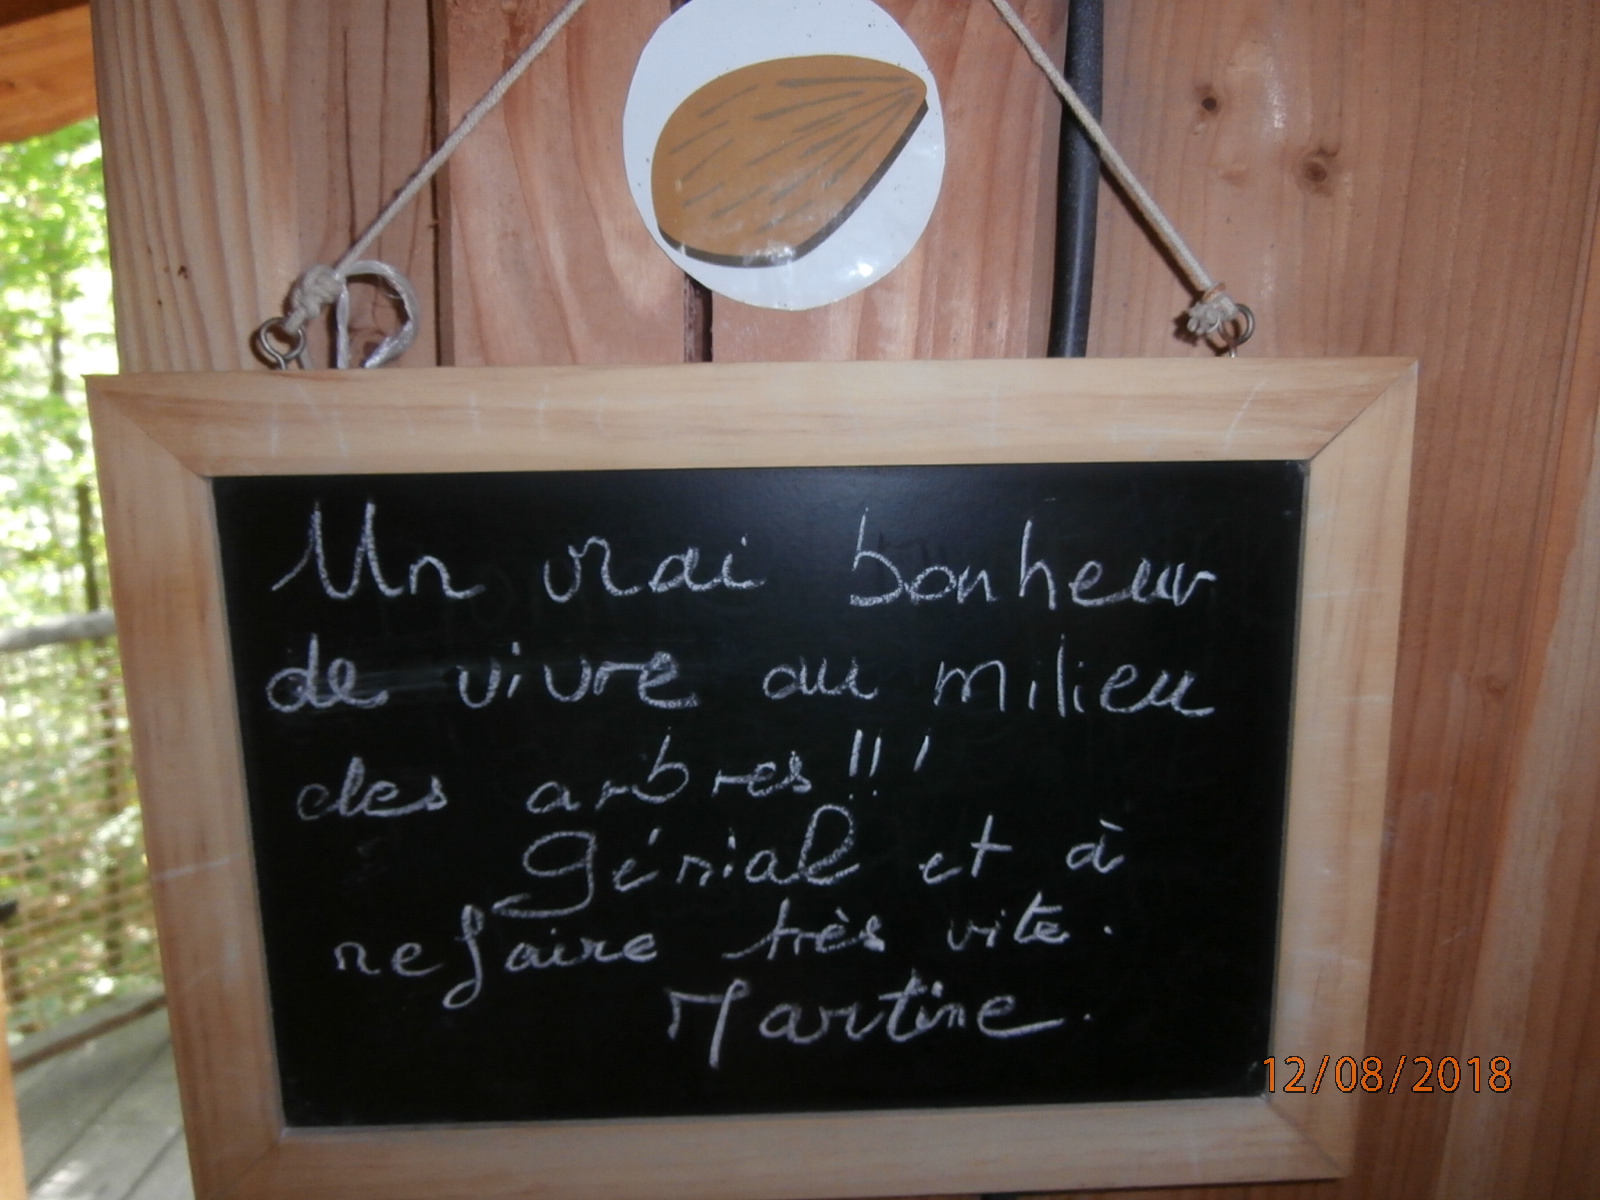 Un vrai bonheur
de vivre au milieu
des arbres !!!
Génial et à
refaire très vite.
Martine.
12/08/2018